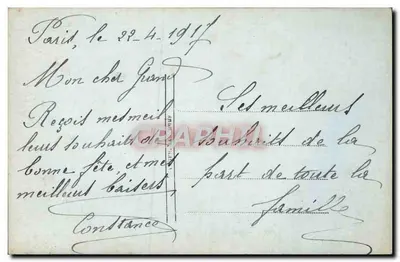 Paris, le 22-4-1917
Mon cher Grand
Reçois mes meil
leurs souhaits de
bonne fête et mes
meilleurs baisers
Constance
Les meilleurs
souhaits de la
part de toute la
famille